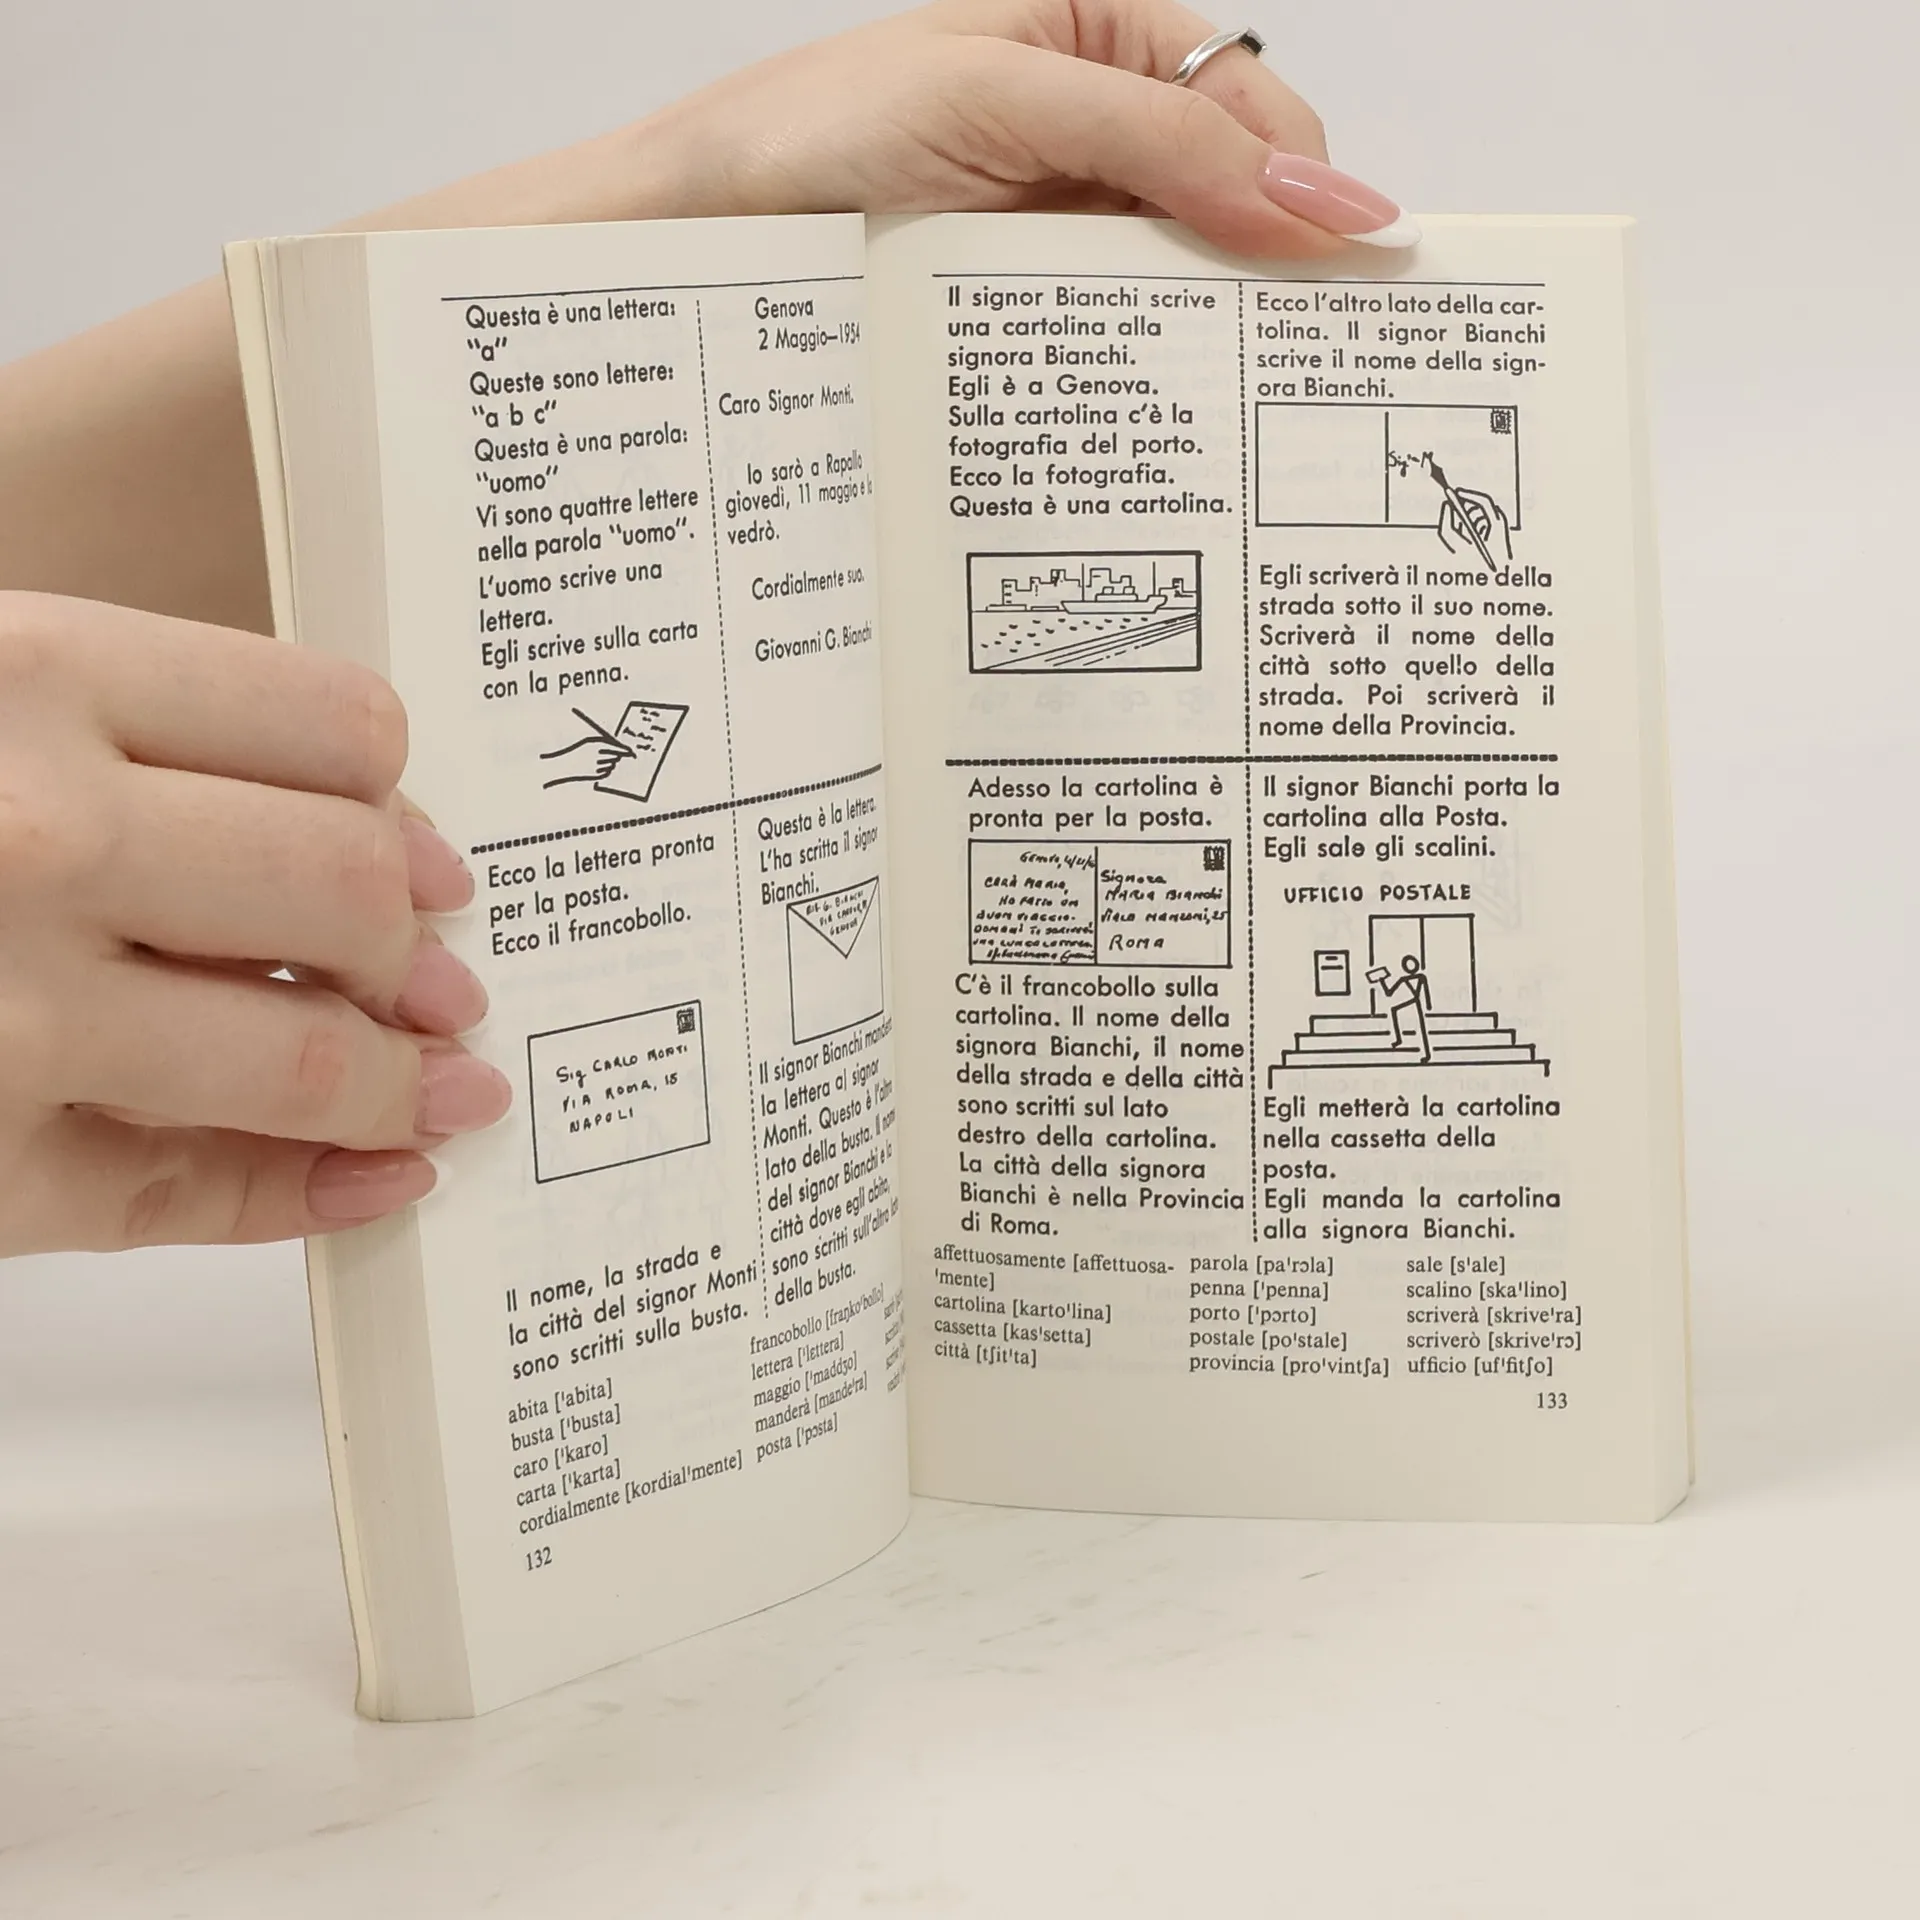 Questa è una lettera:
"a"
Queste sono lettere:
"a b c"
Questa è una parola:
"uomo"
Vi sono quattre lettere
nella parola "uomo".
L'uomo scrive una
lettera.
Egli scrive sulla carta
con la penna.
Genova
2 Maggio—1954
Caro Signor Monti.
Io sarò a Rapallo
giovedì, 11 maggio e
vedrò.
Cordialmente suo.
Giovanni G. Bianchi
Ecco la lettera pronta
per la posta.
Ecco il francobollo.
Sig CARLO MONTI
VIA ROMA, 15
NAPOLI
Il nome, la strada e
la città del signor Monti
sono scritti sulla busta.
Questa è la lettera.
L'ha scritta il signor
Bianchi.
G. BIANCHI
VIA
GENOVA
Il signor Bianchi manderà
la lettera al signor
Monti. Questo è l'altro
lato della busta. Il nome
del signor Bianchi e la
città dove egli abita,
sono scritti sull'altro lato
della busta.
abita ['abita]
busta ['busta]
caro ['karo]
carta ['karta]
cordialmente [kordial'mente]
francobollo [fraŋko'bollo]
lettera ['lɛttera]
maggio ['maddʒo]
manderà [mande'ra]
posta ['pɔsta]
132
Il signor Bianchi scrive
una cartolina alla
signora Bianchi.
Egli è a Genova.
Sulla cartolina c'è la
fotografia del porto.
Ecco la fotografia.
Questa è una cartolina.
Ecco l'altro lato della car-
tolina. Il signor Bianchi
scrive il nome della sign-
ora Bianchi.
Sig^ra M
Egli scriverà il nome della
strada sotto il suo nome.
Scriverà il nome della
città sotto quello della
strada. Poi scriverà il
nome della Provincia.
Adesso la cartolina è
pronta per la posta.
Genova,
CARA MARIA,
HO FATTO UN
BUON VIAGGIO.
DOMANI TI SCRIVERÒ
UNA LUNGA LETTERA
Signora
MARIA BIANCHI
VIALE MANZONI, 25
ROMA
C'è il francobollo sulla
cartolina. Il nome della
signora Bianchi, il nome
della strada e della città
sono scritti sul lato
destro della cartolina.
La città della signora
Bianchi è nella Provincia
di Roma.
Il signor Bianchi porta la
cartolina alla Posta.
Egli sale gli scalini.
UFFICIO POSTALE
Egli metterà la cartolina
nella cassetta della
posta.
Egli manda la cartolina
alla signora Bianchi.
affettuosamente [affettuosa-
'mente]
cartolina [karto'lina]
cassetta [kas'setta]
città [tʃit'ta]
parola [pa'rɔla]
penna ['penna]
porto ['pɔrto]
postale [po'stale]
provincia [pro'vintʃa]
sale [s'ale]
scalino [ska'lino]
scriverà [skrive'ra]
scriverò [skrive'rɔ]
ufficio [uf'fitʃo]
133